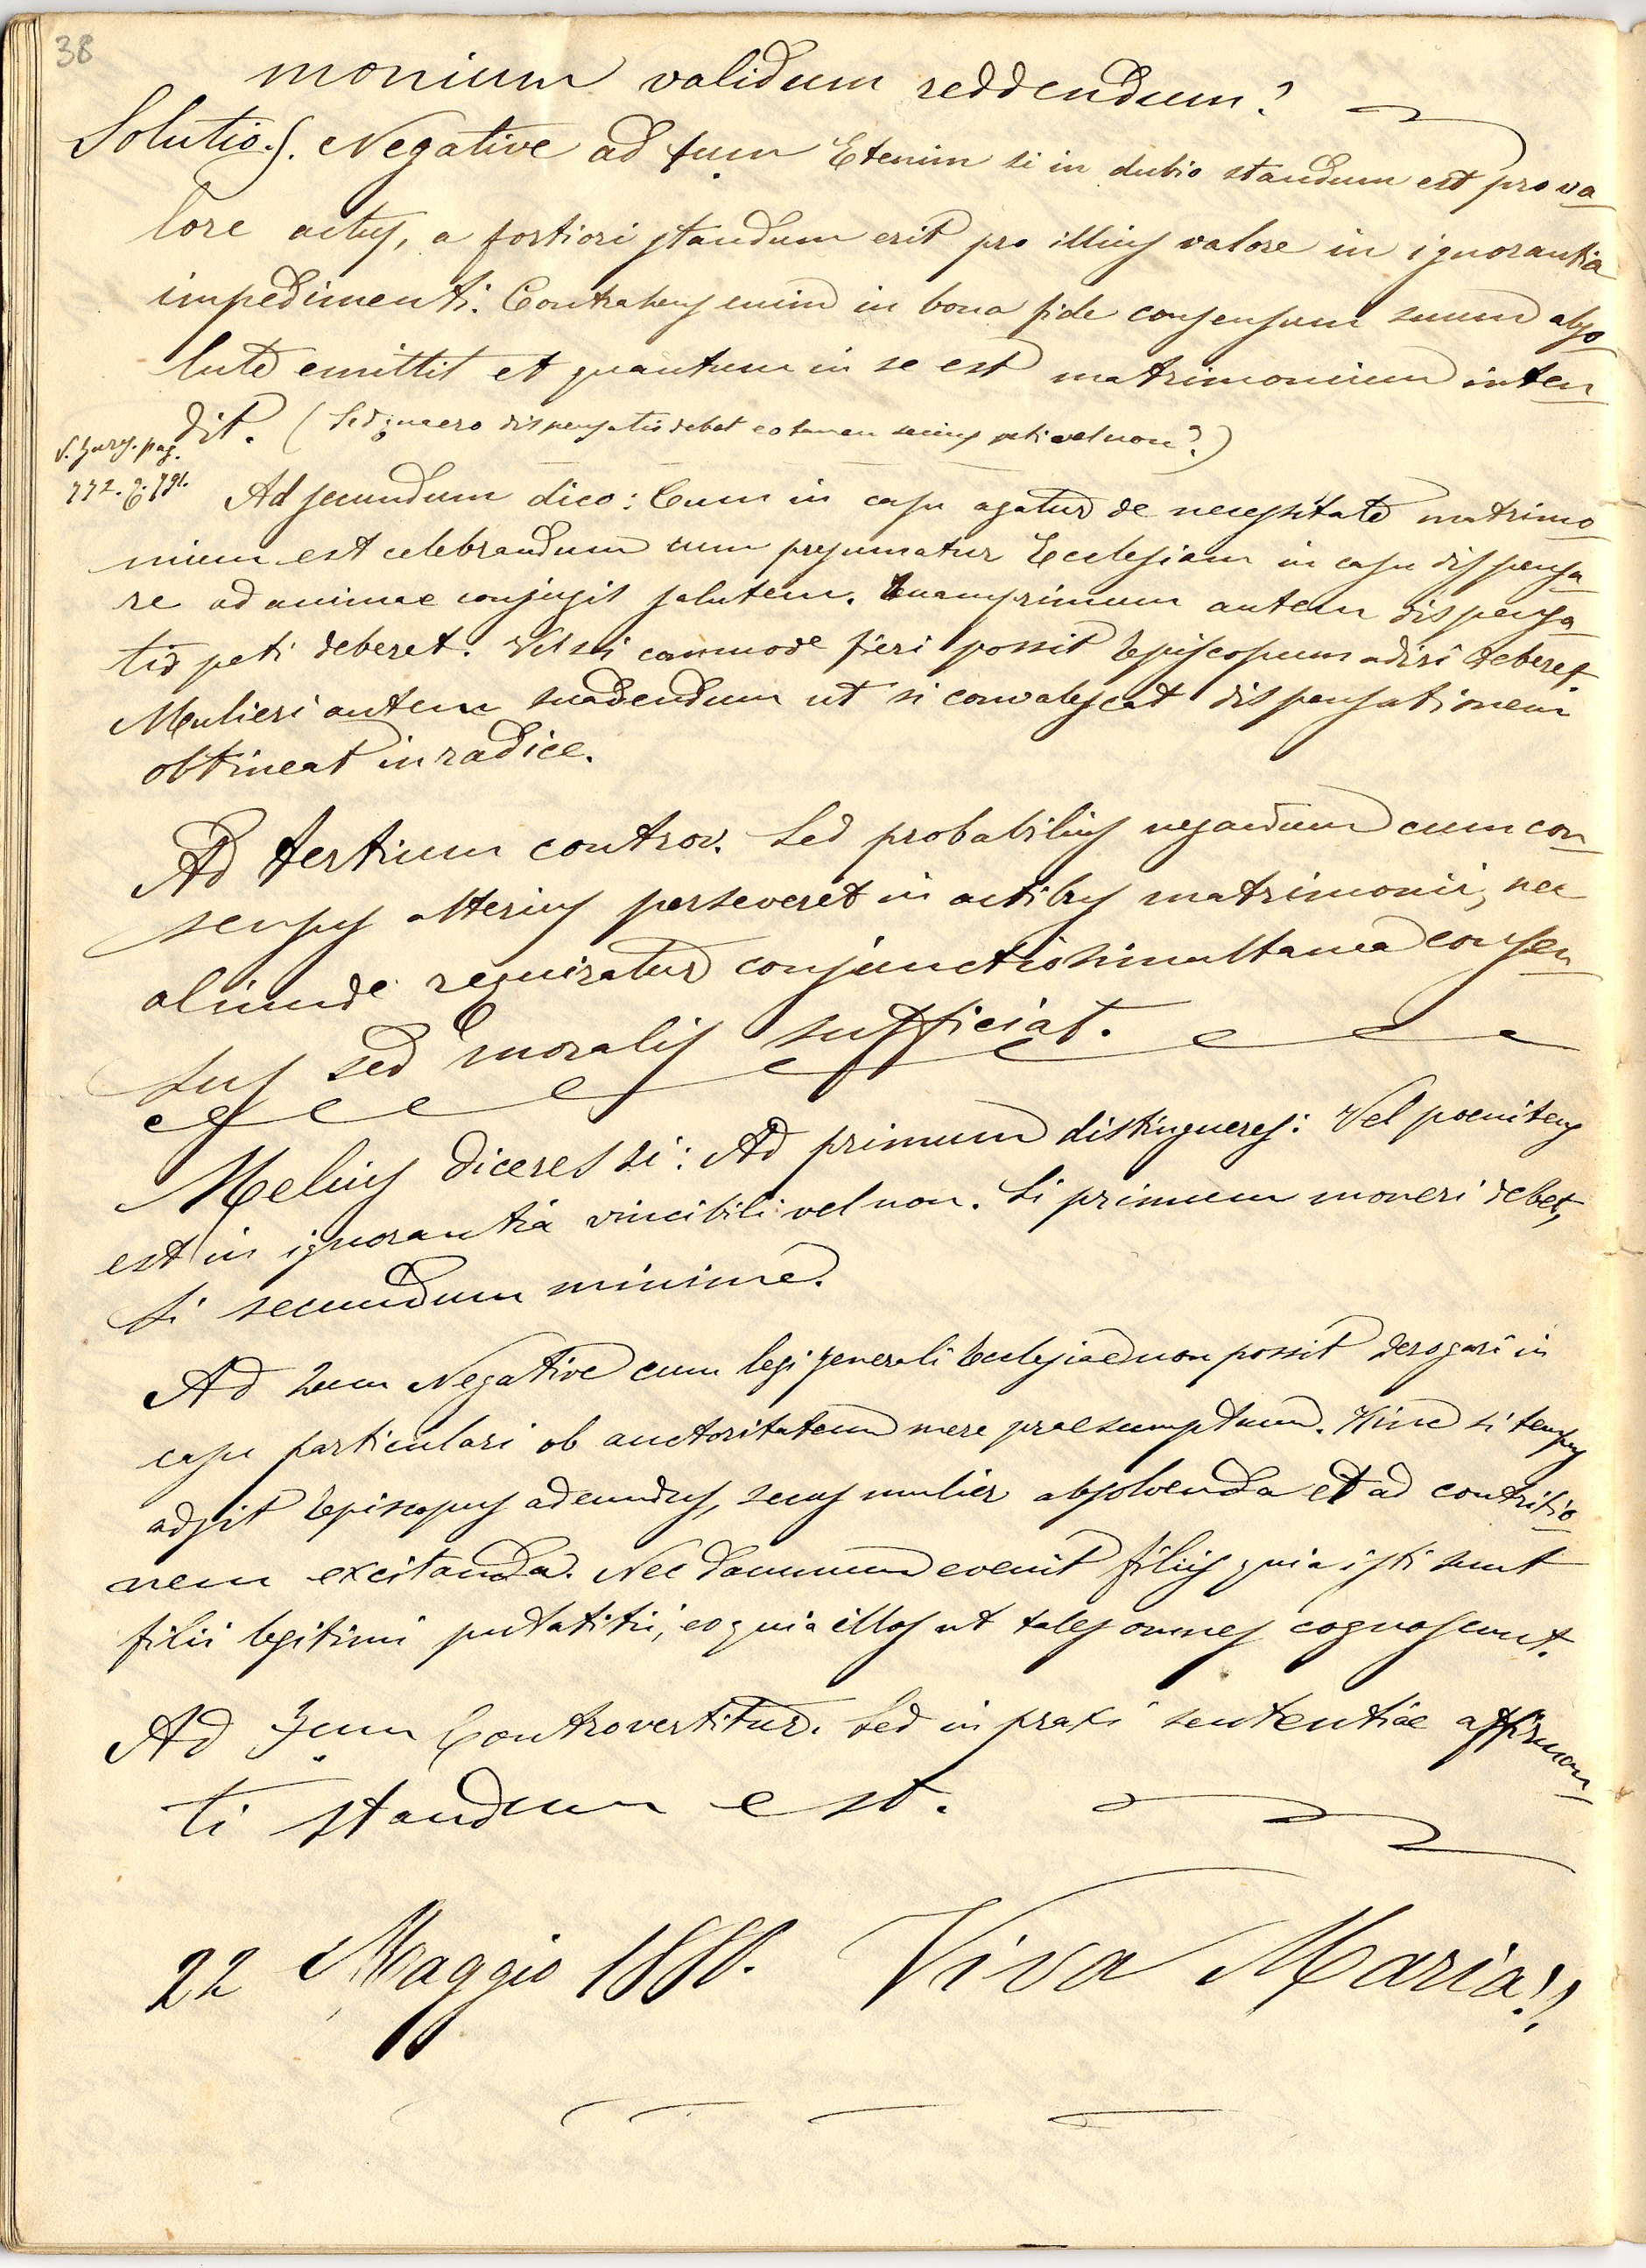 38
monium validum reddendum?
Solutio. Negative ad Ium Etenim si in dubio standum est pro va
lore actus, a fortiori standum erit pro illius valore in ignorantia
impedimenti. Contrahens enim in bona fide consensum suum abso
lute emittit et quantum in se est matrimonium inten
dit. (Sed quaero dispensatio debet eo tamen peti vel non?)
pag.
Ad secundum dico: Cum in casu agatur de necessitate matrimo
nium est celebrandum cum presumatur Ecclesiam in casu dispensa
re ad animae conjugis salutem. Quamprimum autem dispensa
tio peti deberet. Vel si commode fieri possit Episcopum adiri deberet.
Mulieri autem suadendum ut si convalescat dispensationem
obtineat in radice.
Ad tertium controv. Sed probabilius negandum cum con
sensus alterius perseveret in actibus matrimonii, nec
aliunde requiratur conjunctio simultanea consen
sus sed moralis sufficiat.
Melius diceres si: Ad primum distingueres: Vel poenitens
est in ignorantia vincibili vel non. Si primum moneri debet,
Si secundum minime.
Ad 2um Negative cum legi generali Ecclesiae non possit derogari in
casu particulari ob auctoritatem mere praesumptam. Hinc si tempus
adsit Episcopus adeundus, secus mulier absolvenda et ad contritio
nem excitanda. Nec damnum evenit filiis quia isti sunt
filii legitimi putatitii, eo quia illos ut tales omnes cognoscunt.
Ad 3um Controvertitur. Sed in praxi sententiae affirman
ti standum est.
22 Maggio 1880. Viva Maria!!